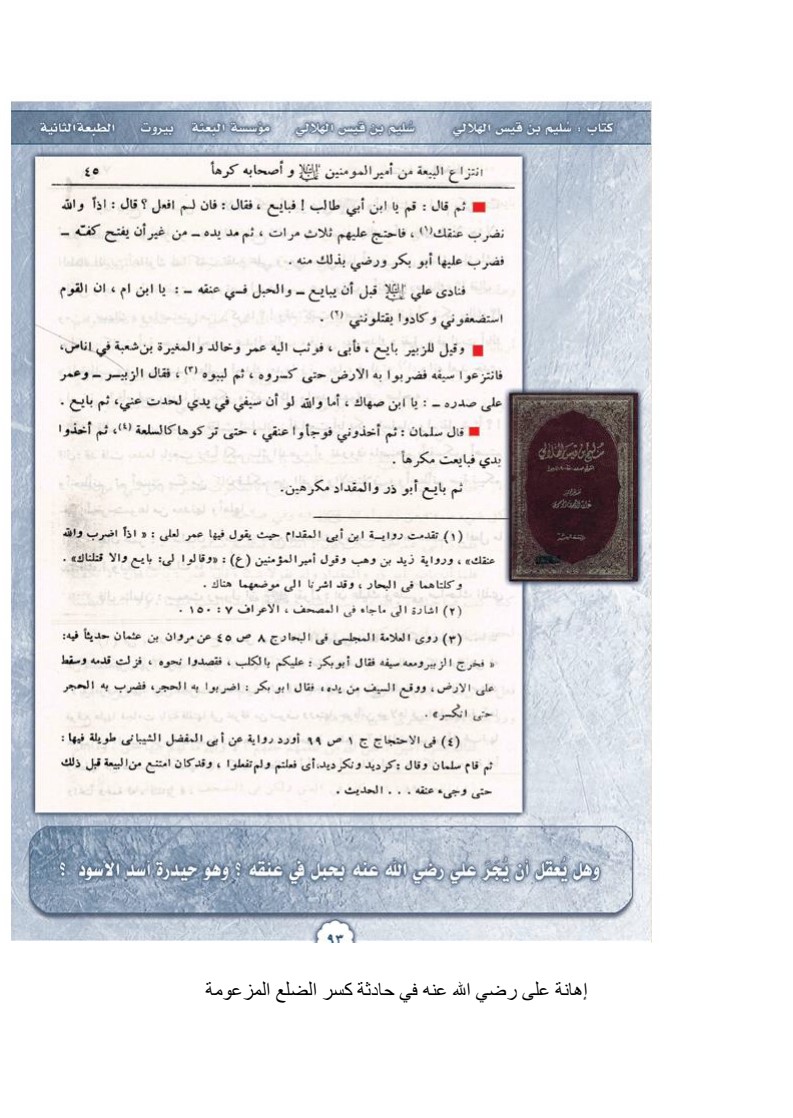 كتاب : سُليم بن قيس الهلالي سُليم بن قيس الهلالي مؤسسة البعثة بيروت الطبعة الثانية
انتزاع البيعة من أميرالمومنين و أصحابه كرهاً ٤٥
ثم قال : قم يا ابن أبي طالب ! فبايع ، فقال : فان لم افعل ؟ قال : اذاً والله
نضرب عنقك(١) ، فاحتج عليهم ثلاث مرات ، ثم مد يده ــ من غيرأن يفتح كفّه ــ
فضرب عليها أبو بكر ورضي بذلك منه .
فنادى علي قبل أن يبايع ــ والحبل في عنقه ــ : يا ابن ام ، ان القوم
استضعفوني وكادوا يقتلونني (٢) .
وقيل للزبير بايع ، فأبى ، فوثب اليه عمر وخالد والمغيرة بن شعبة في اناس،
فانتزعوا سيفه فضربوا به الارض حتى كسروه ، ثم لببوه (٣) ، فقال الزبير ــ وعمر
على صدره ــ : يا ابن صهاك ، أما والله لو أن سيفي في يدي لحدت عني، ثم بايع .
قال سلمان : ثم أخذوني فوجأوا عنقي ، حتى تركوها كالسلعة (٤)، ثم أخذوا
يدي فبايعت مكرهاً .
ثم بايع أبو ذر والمقداد مكرهين.
(١) تقدمت رواية ابن أبي المقدام حيث يقول فيها عمر لعلى : « اذاً اضرب والله
عنقك» ، ورواية زيد بن وهب وقول أميرالمؤمنين (ع) : «وقالوا لى: بايع والا قتلناك» .
وكلتاهما في البحار ، وقد اشرنا الى موضعهما هناك .
(٢) اشارة الى ماجاء فى المصحف ، الاعراف ٧ : ١٥٠ .
(٣) روى العلامة المجلسي فى البحارج ٨ ص ٤٥ عن مروان بن عثمان حديثاً فيه:
« فخرج الزبيرومعه سيفه فقال أبوبكر : عليكم بالكلب ، فقصدوا نحوه ، فزلت قدمه وسقط
على الارض ، ووقع السيف من يده، فقال ابو بكر : اضربوا به الحجر، فضرب به الحجر
حتى انكسر» .
(٤) فى الاحتجاج ج ١ ص ٩٩ أورد رواية عن أبى المفضل الشيبانى طويلة فيها :
ثم قام سلمان وقال :كرديد ونكرديد،أى فعلتم ولم تفعلوا ، وقدكان امتنع من البيعة قبل ذلك
حتى وجىء عنقه . . . الحديث .
سليم بن قيس الهلالي
وهل يُعقل أن يُجَرّ علي رضي الله عنه بحبل في عنقه ؟ وهو حيدرة أسد الأسود ؟
٩٣
إهانة على رضي الله عنه في حادثة كسر الضلع المزعومة